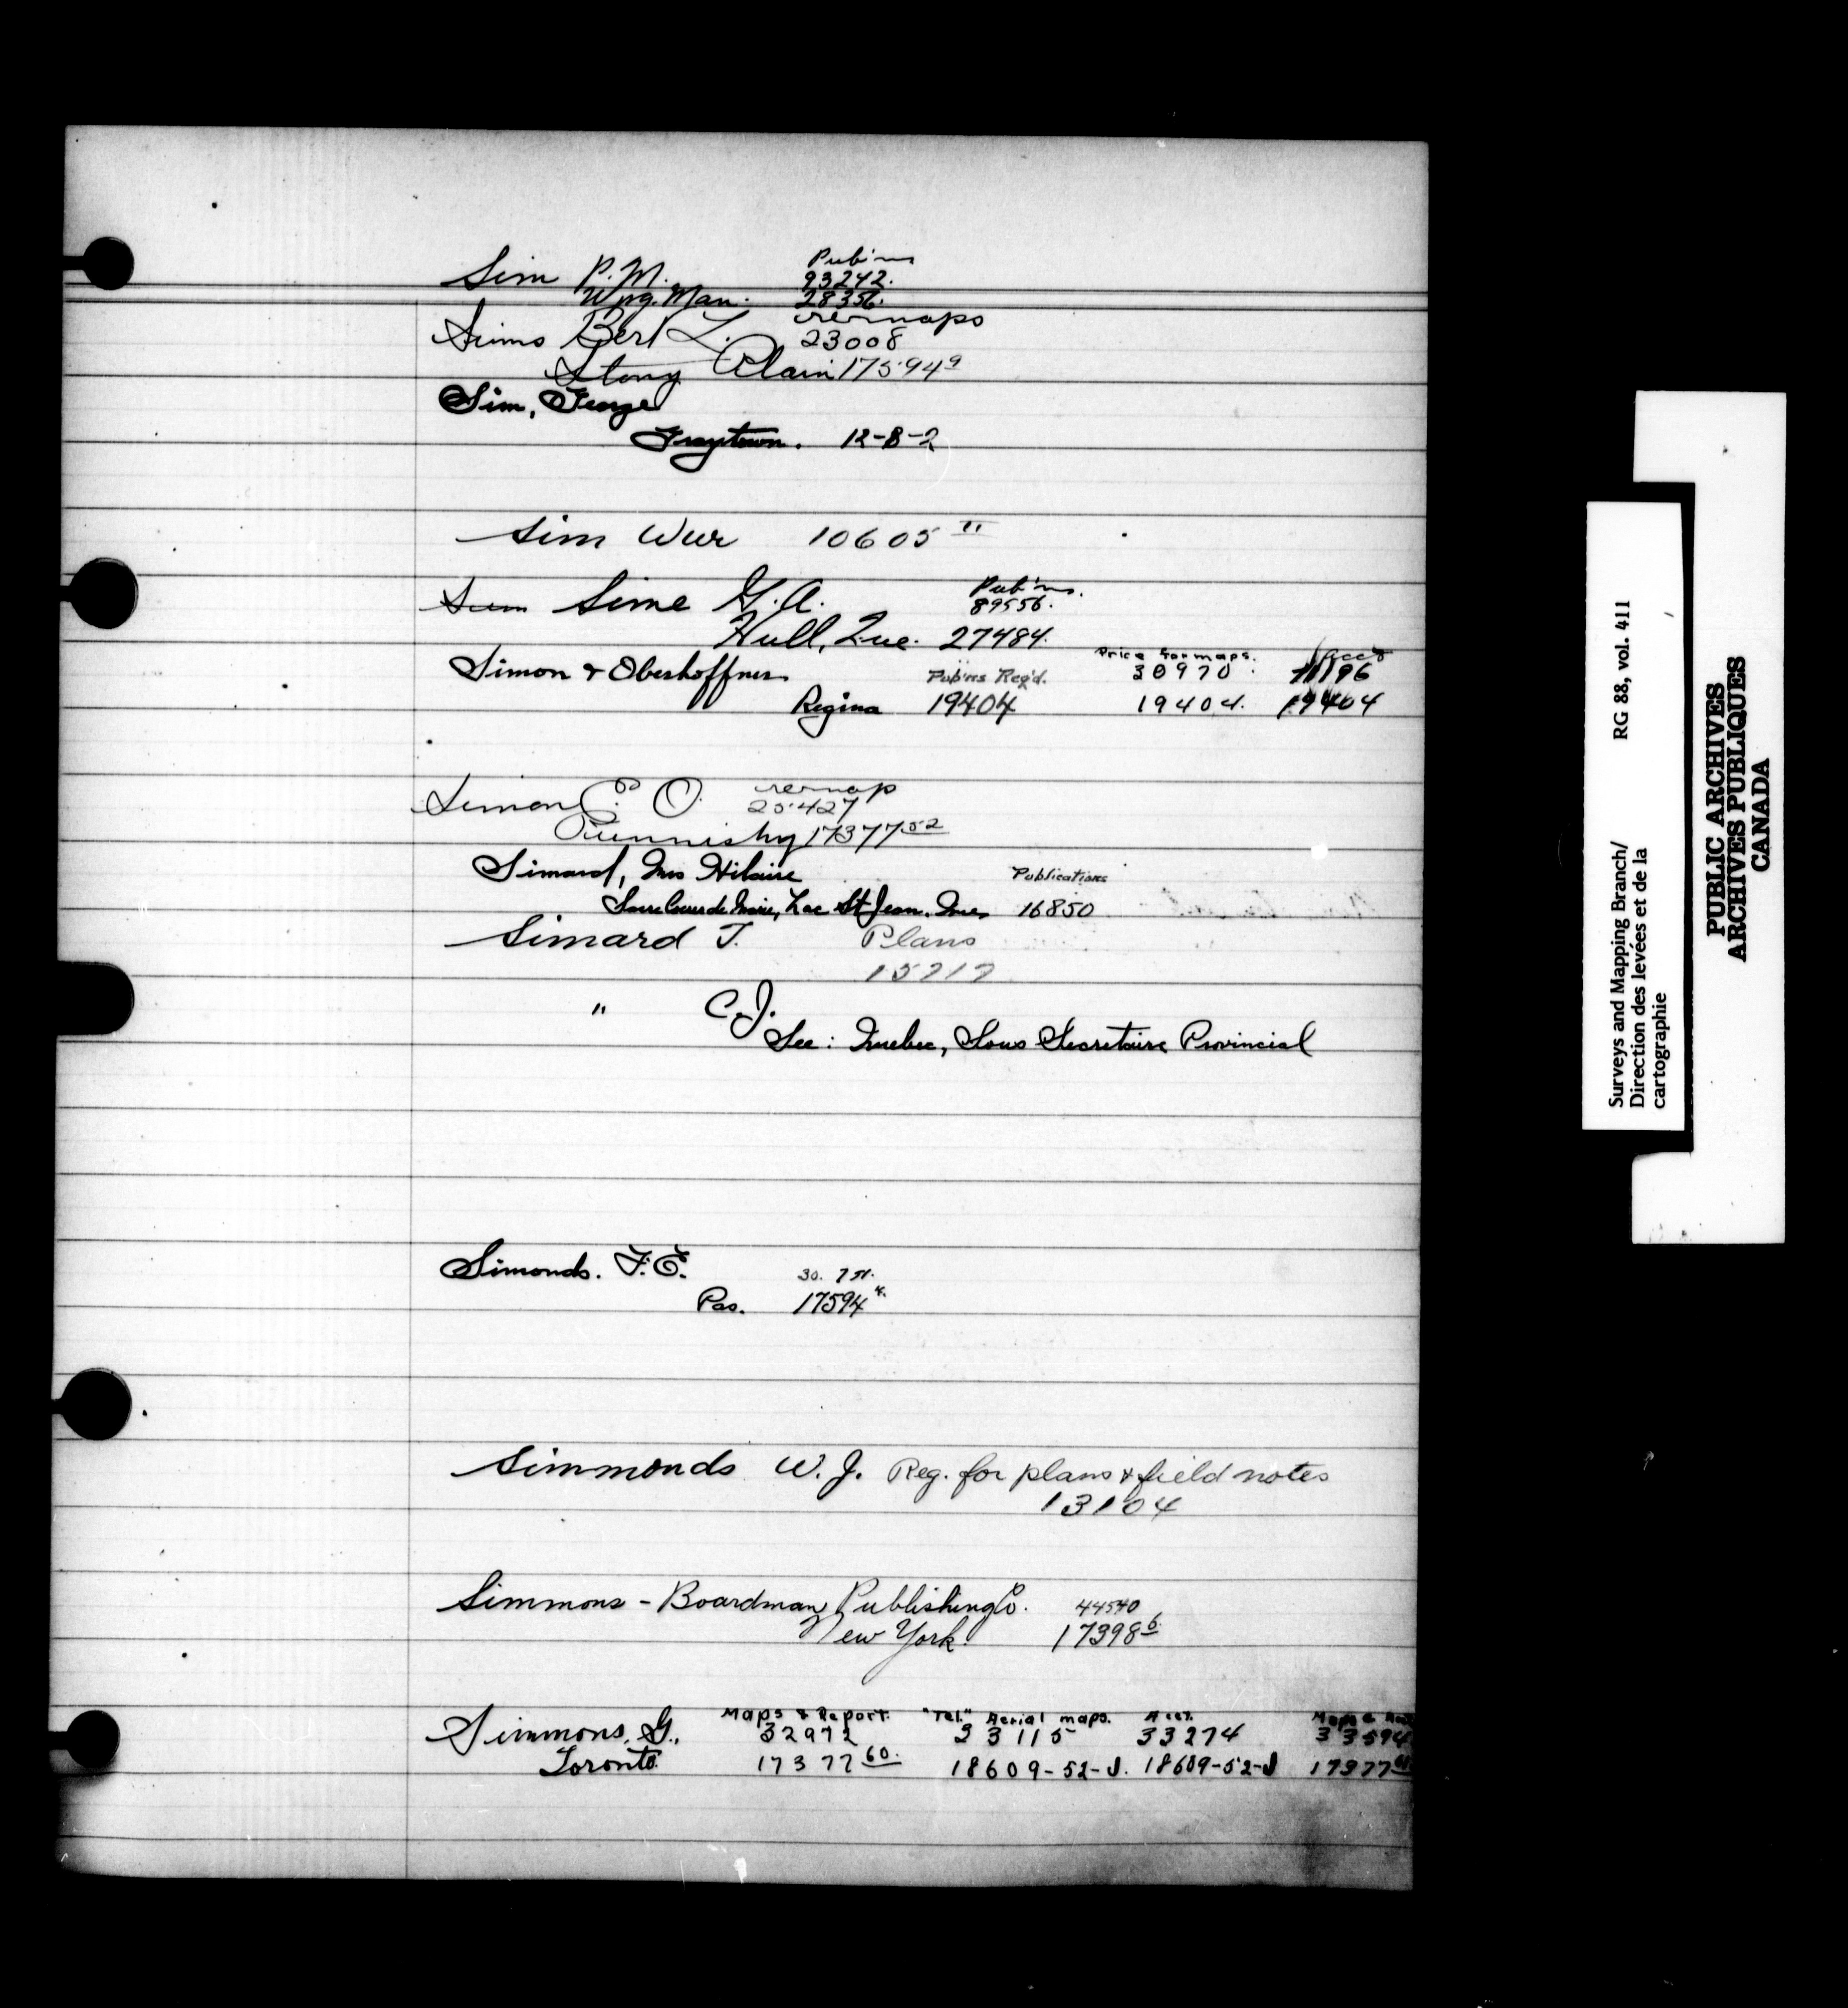 Sim P.M. Pub'ns
93242.
Wpg. Man. 28356.
Sims Bert L. re maps
23008
Stony Plain 17594 9
Sim, George
Graytown. 12-8-2
Sim Weir 10605 11
Sim Sime G.A. Pub'ns.
89556.
Hull, Que. 27484.
Simon & Oberhoffner Pub'ns Req'd. Price for maps. 30970. Acct
Regina 19404 19404. 19404
Simon E. O. re map
25427
17377 52
Simard, Mrs Hilaire Publications
Sacre Coeur de Marie, Lac St Jean, Que. 16850
Simard T. Plans
15717
" C.J.
See: Quebec, Sous Secretaire Provincial
Simonds. F.E.
Pas. 17594
Simmonds W.J. Reg. for plans & field notes
13104
Simmons - Boardman Publishing Co. 44540
New York. 17398 6
Simmons, G., Maps & Report. "Tel." Aerial maps. Acct.
32972 33115 33274 33594
Toronto. 17377 60. 18609-52-J. 18609-52-J 17377
Surveys and Mapping Branch/ RG 88, vol. 411
Direction des levées et de la
cartographie
PUBLIC ARCHIVES
ARCHIVES PUBLIQUES
CANADA